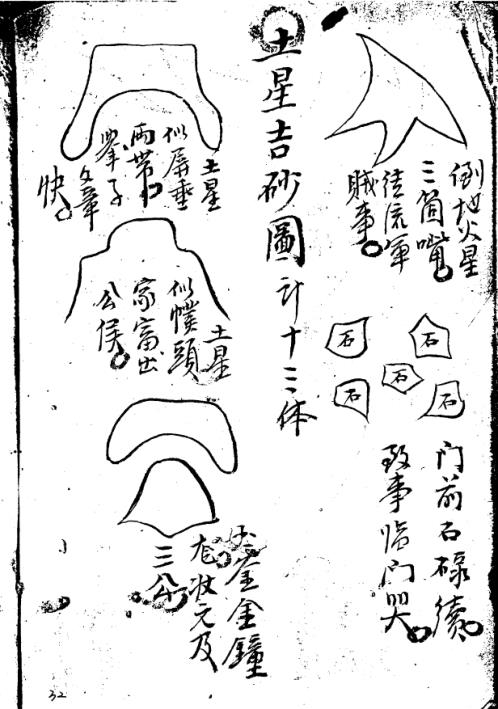 倒地火星
三箇嘴
徒流軍
賊事
石
石
石
石
石
门前石碌續
致事臨门哭
土星吉砂圖計十三体
土星
似屏垂
兩帶
舉子
文章
快
土星
似幞頭
家富出
公侯
釜金鐘
状元及
三公
32